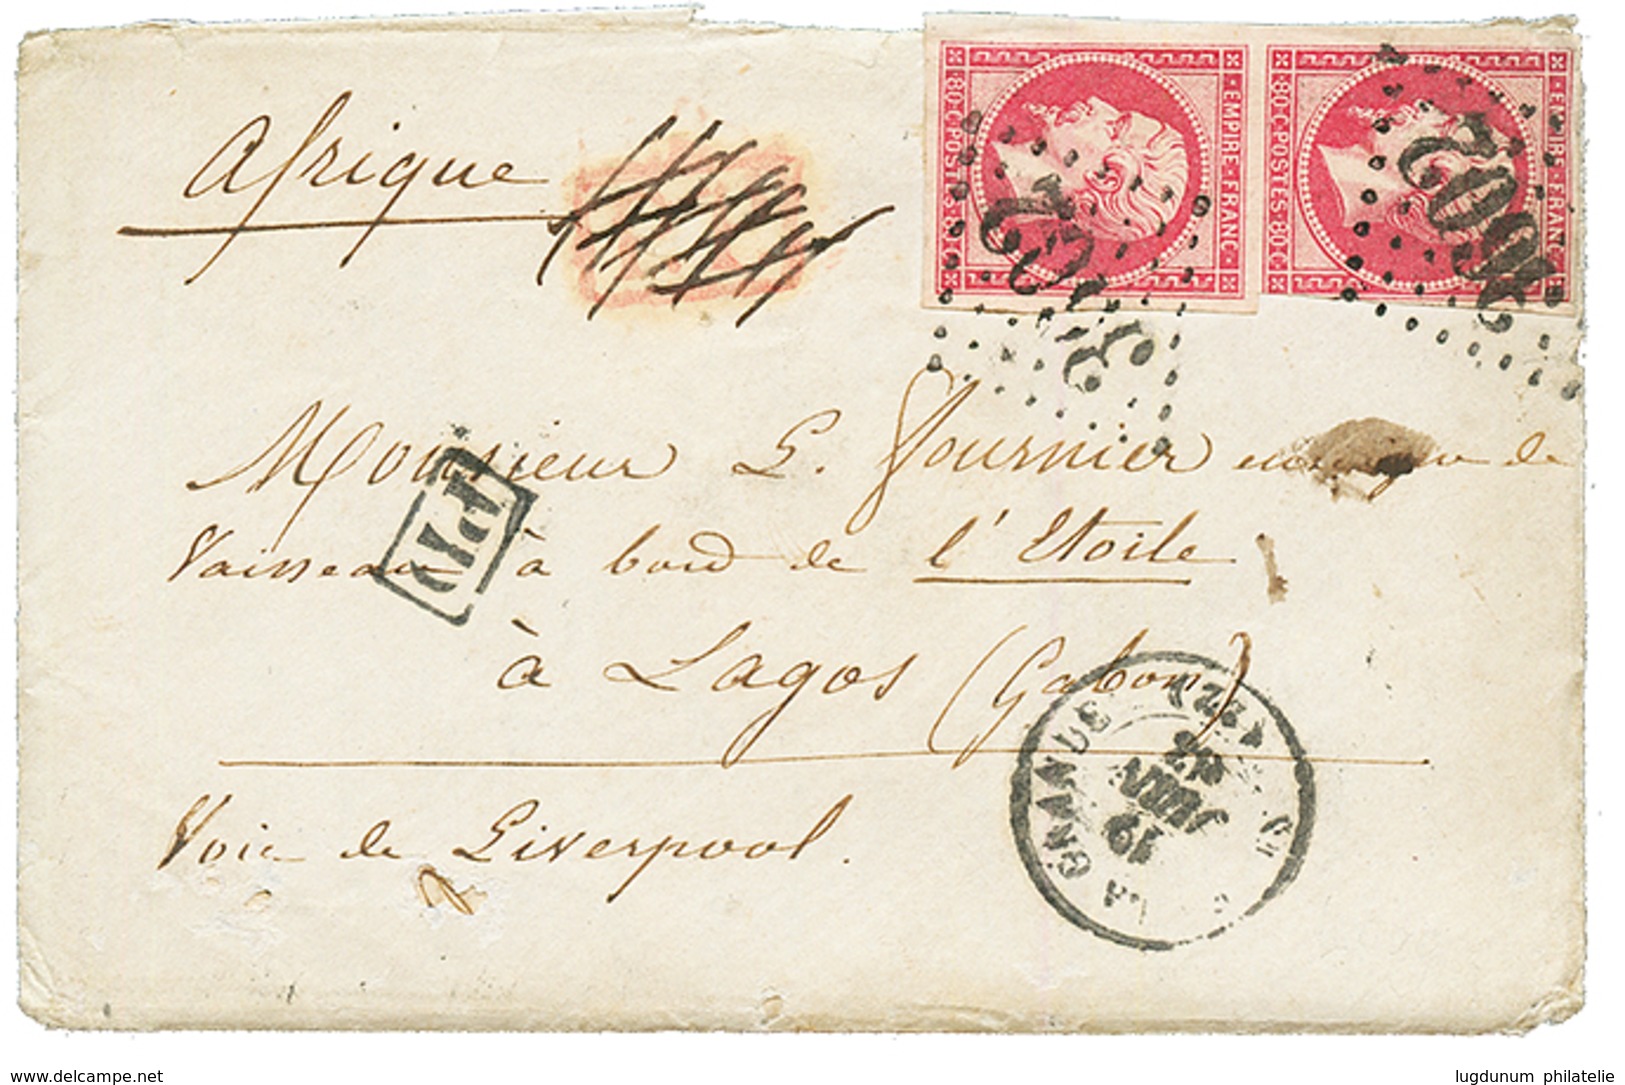 Afrique
80·C·POSTES·80·C· EMPIRE·FRANC·
·80·C·POSTES·80·C· EMPIRE·FRANC·
Monsieur L. Fournier enseigne de
Vaisseau à bord de l'Etoile
à Lagos (Gabon)
Voie de Liverpool.
PD
LA GRANDE
(22)
19
JUIN
63
www.delcampe.net
lugdunum philatelie